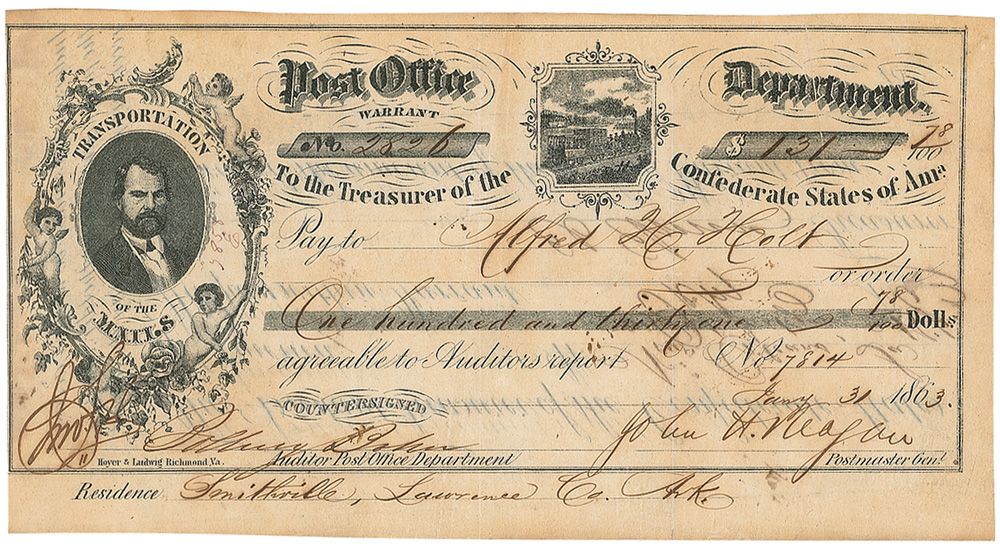 TRANSPORTATION
OF THE
MAILS
Post Office Department.
WARRANT
No. 2826
$ 131 — 78/100
To the Treasurer of the Confederate States of Ama
Pay to Alfred H. Holt
or order
One hundred and thirty one 78/100 Dolls
agreeable to Auditors report No 7814
Jany 31 1863.
COUNTERSIGNED
John H. Reagan
Hoyer & Ludwig Richmond Va.
Auditor Post Office Department
Postmaster Genl.
Residence Smithville, Lawrence Co. Ark.